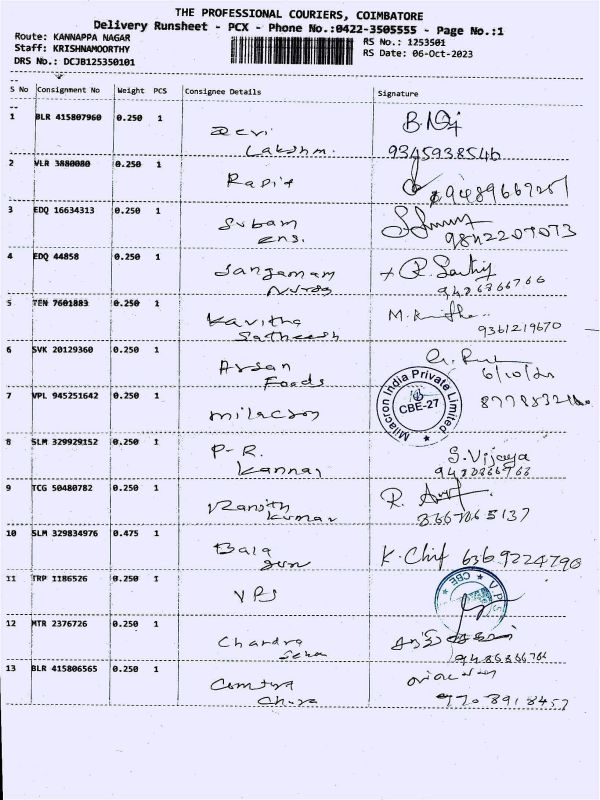 THE PROFESSIONAL COURIERS, COIMBATORE
Delivery Runsheet - PCX - Phone No.:0422-3505555 - Page No.:1
Route: KANNAPPA NAGAR
Staff: KRISHNAMOORTHY
DRS No.: DCJB125350101
RS No.: 1253501
RS Date: 06-Oct-2023
S No Consignment No Weight PCS Consignee Details Signature
1 BLR 415807960 0.250 1
Devi
Lakshm.
9345938546
2 VLR 3880080 0.250 1
3 EDQ 16634313 0.250 1
Subam
ens.
9842207073
4 EDQ 44858 0.250 1
Sangamam
9486866766
5 TEN 7601883 0.250 1
Kavitha
Satheesh
9361219670
6 SVK 20129360 0.250 1
Arsan
Foods
7 VPL 945251642 0.250 1
milacron
Milacron India Private Limited
CBE-27
8 SLM 329929152 0.250 1
P-R.
Kannan
S. Vijaya
9 TCG 50480782 0.250 1
Ranjith
Kumar
8667065137
10 SLM 329834976 0.475 1
Bala
6369224790
11 TRP 1186526 0.250 1
VPS
VPS
CBE
12 MTR 2376726 0.250 1
Chandra
Seka
9486866766
13 BLR 415806565 0.250 1
9708918457